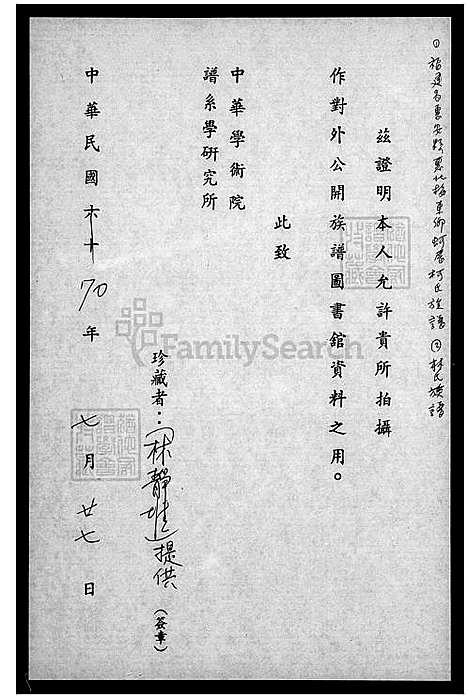 ①福建省惠安縣惠北梅東鄉蚵厝柯氏族譜 ②林氏族譜
茲證明本人允許貴所拍攝
作對外公開族譜圖書館資料之用。
此致
中華學術院
譜系學研究所
珍藏者：林靜 提供（簽章）
中華民國六十 70年七月廿七日
FamilySearch